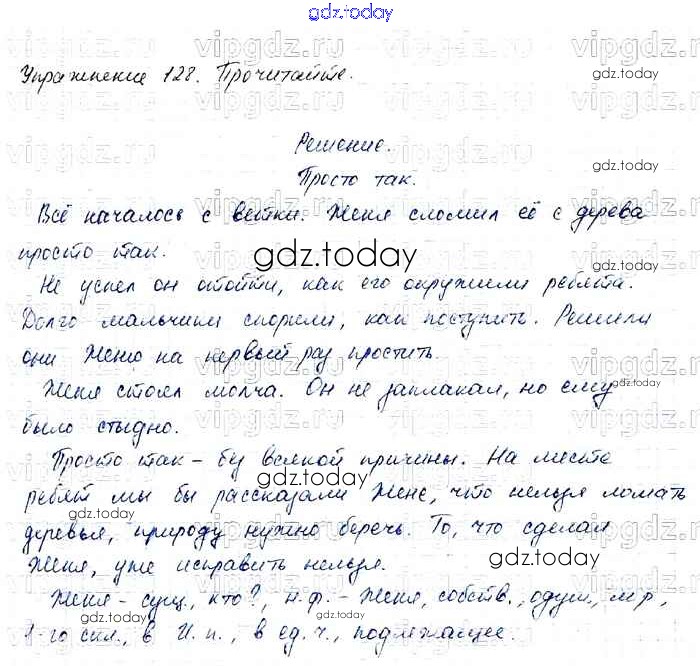 gdz.today
Упражнение 128. Прочитайте.
gdz.today
Решение.
Просто так.
gdz.today
Всё началось с ветки. Женя сломил её с дерева
просто так.
gdz.today
gdz.today
Не успел он отойти, как его окружили ребята.
Долго мальчики спорили, как поступить. Решили
они Женю на первый раз простить.
Женя стоял молча. Он не заплакал, но ему
gdz.today
было стыдно.
Просто так - без всякой причины. На месте
gdz.today
ребят мы бы рассказали Жене, что нельзя ломать
gdz.today
деревья, природу нужно беречь. То, что сделал
Женя, уже исправить нельзя.
gdz.today
Женя - сущ., кто?, н.ф. - Женя, собств., одуш., м.р.,
1-го скл., в И.п., в ед.ч., подлежащее.
gdz.today
vipgdz.ru